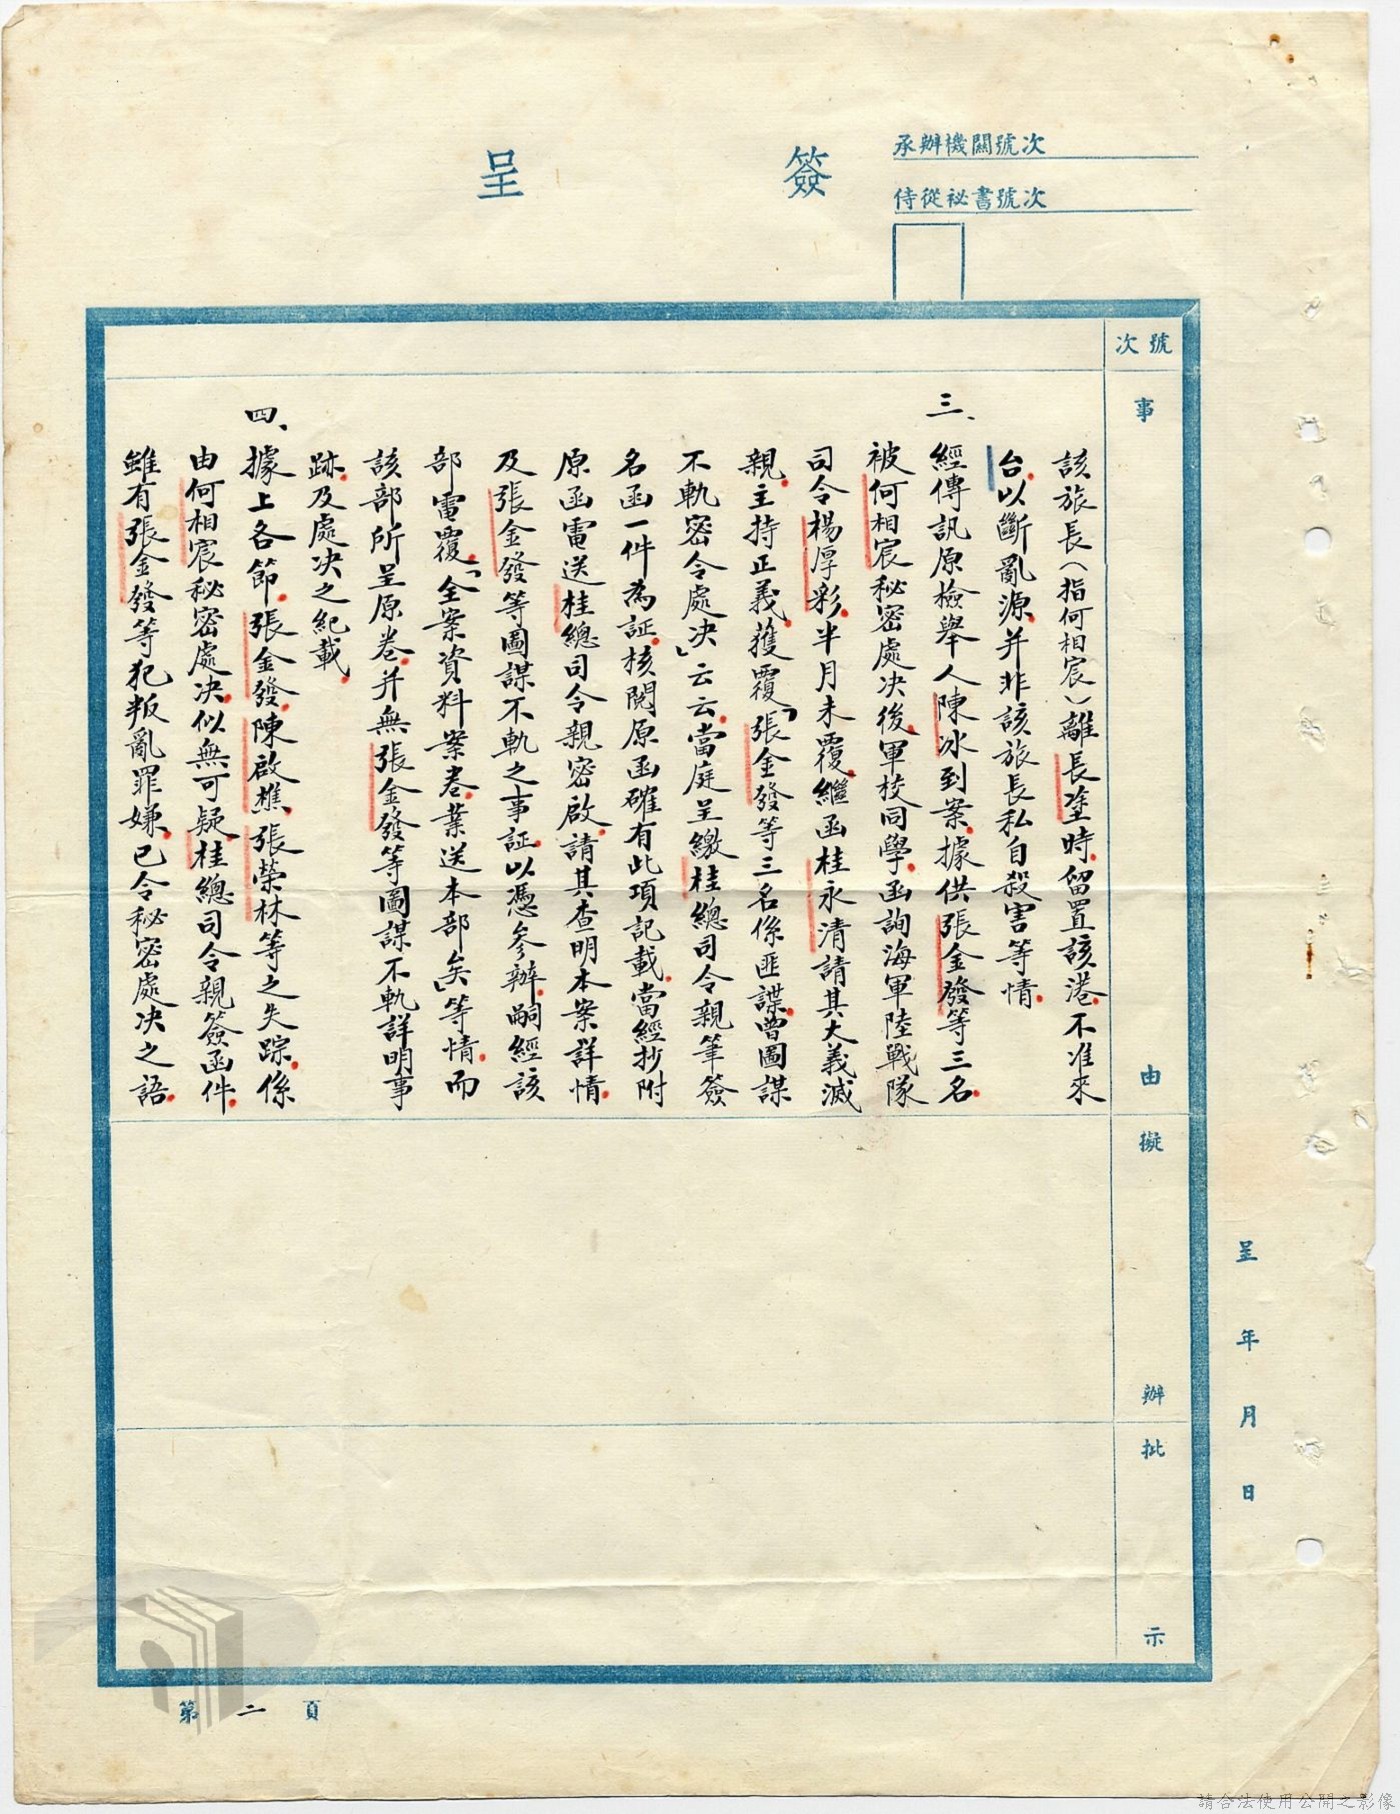 簽呈
承辦機關號次
侍從祕書號次
號次
事由
擬辦
批示
呈 年 月 日
該旅長（指何相宸）離長塗時．留置該港．不准來
台．以斷亂源．并非該旅長私自殺害等情．
三、經傳訊原檢舉人陳冰到案．據供張金發等三名．
被何相宸秘密處决後．軍校同學．函詢海軍陸戰隊
司令楊厚彩．半月未覆．繼函桂永清請其大義滅
親．主持正義．獲覆「張金發等三名係匪諜．曾圖謀
不軌密令處决」云云．當庭呈繳桂總司令親筆簽
名函一件為証．核閱原函確有此項記載．當經抄附
原函電送桂總司令親密啟．請其查明本案詳情．
及張金發等圖謀不軌之事証．以憑參辦．嗣經該
部電覆．「全案資料案卷．業送本部矣」等情．而
該部所呈原卷．并無張金發等圖謀不軌詳明事
跡．及處决之紀載．
四、據上各節．張金發．陳啟樵．張榮林等之失踪．係
由何相宸秘密處决．似無可疑．桂總司令親簽函件．
雖有張金發等犯叛亂罪嫌．已令秘密處决之語．
第二頁
請合法使用公開之影像